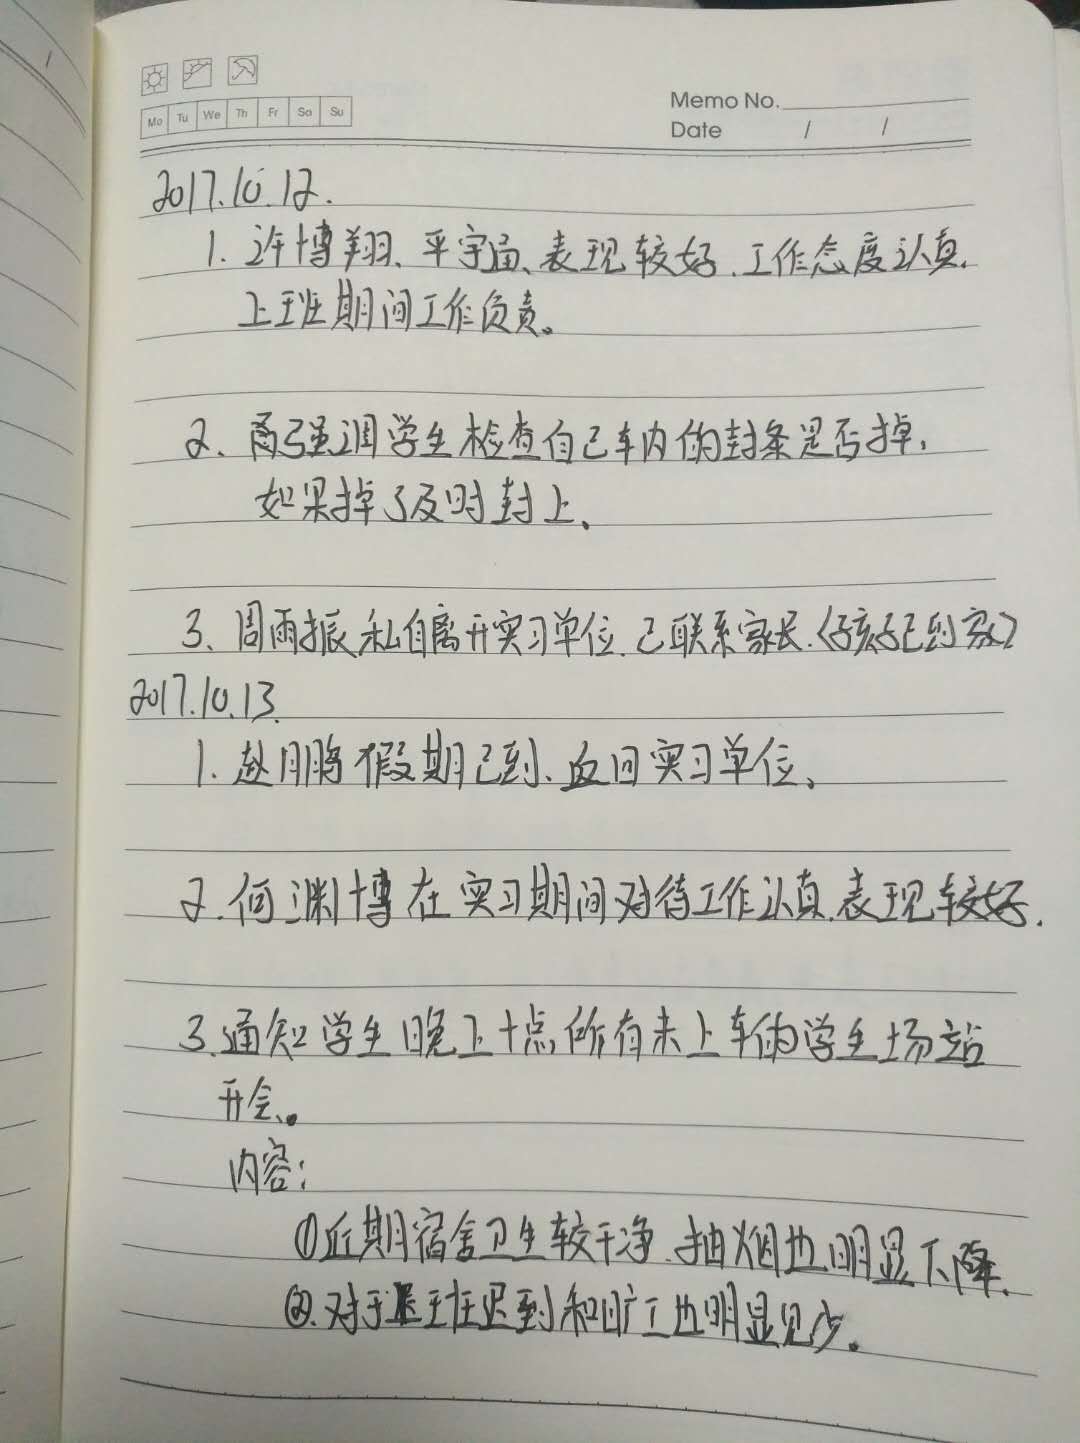 Mo Tu We Th Fr Sa Su
Memo No.
Date / /
2017.10.12.
1. 许博翔、平宇宙、表现较好、工作态度认真、
上班期间工作负责。
2、再强调学生检查自己车内的封条是否掉,
如果掉了及时封上、
3、周雨振私自离开实习单位、已联系家长.(孩子已到家)
2017.10.13.
1. 赵鹏假期已到、返回实习单位、
2. 何渊博在实习期间对待工作认真、表现较好.
3.通知学生晚上十点所有未上车的学生场站
开会。
内容:
①近期宿舍卫生较干净、抽烟也明显下降、
②.对于上班迟到和旷工也明显见少。